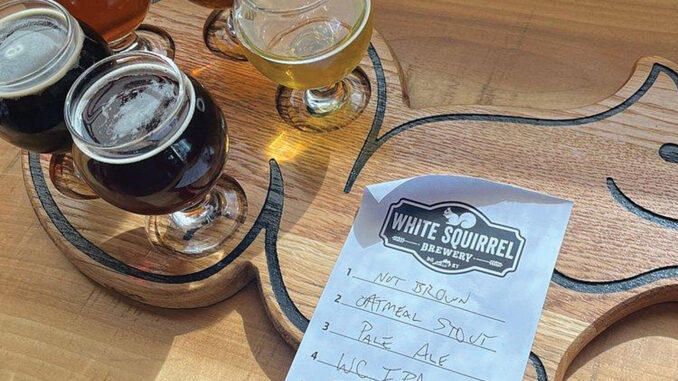 WHITE SQUIRREL
BREWERY
BG KY
1 NUT BROWN
2 OATMEAL STOUT
3 PALE ALE
4 WC IPA